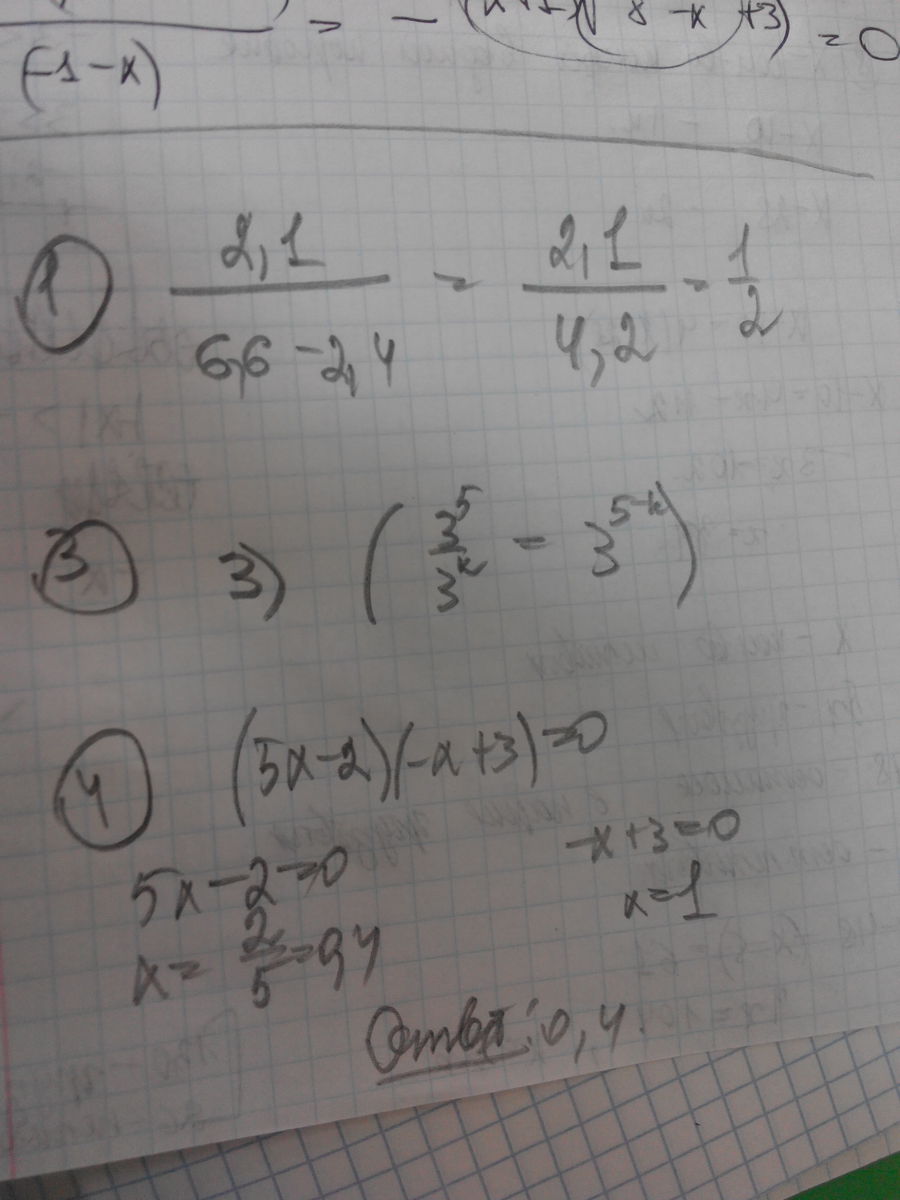 (-1-x) = - ... -x+3) = 0
① 2,1 / 6,6-2,4 = 2,1 / 4,2 = 1/2
③ 3) (3^5 / 3^k = 3^(5-k))
④ (5x-2)(-x+3)=0
5x-2=0 -x+3=0
x = 2/5 = 0,4 x=1
Ответ: 0,4.